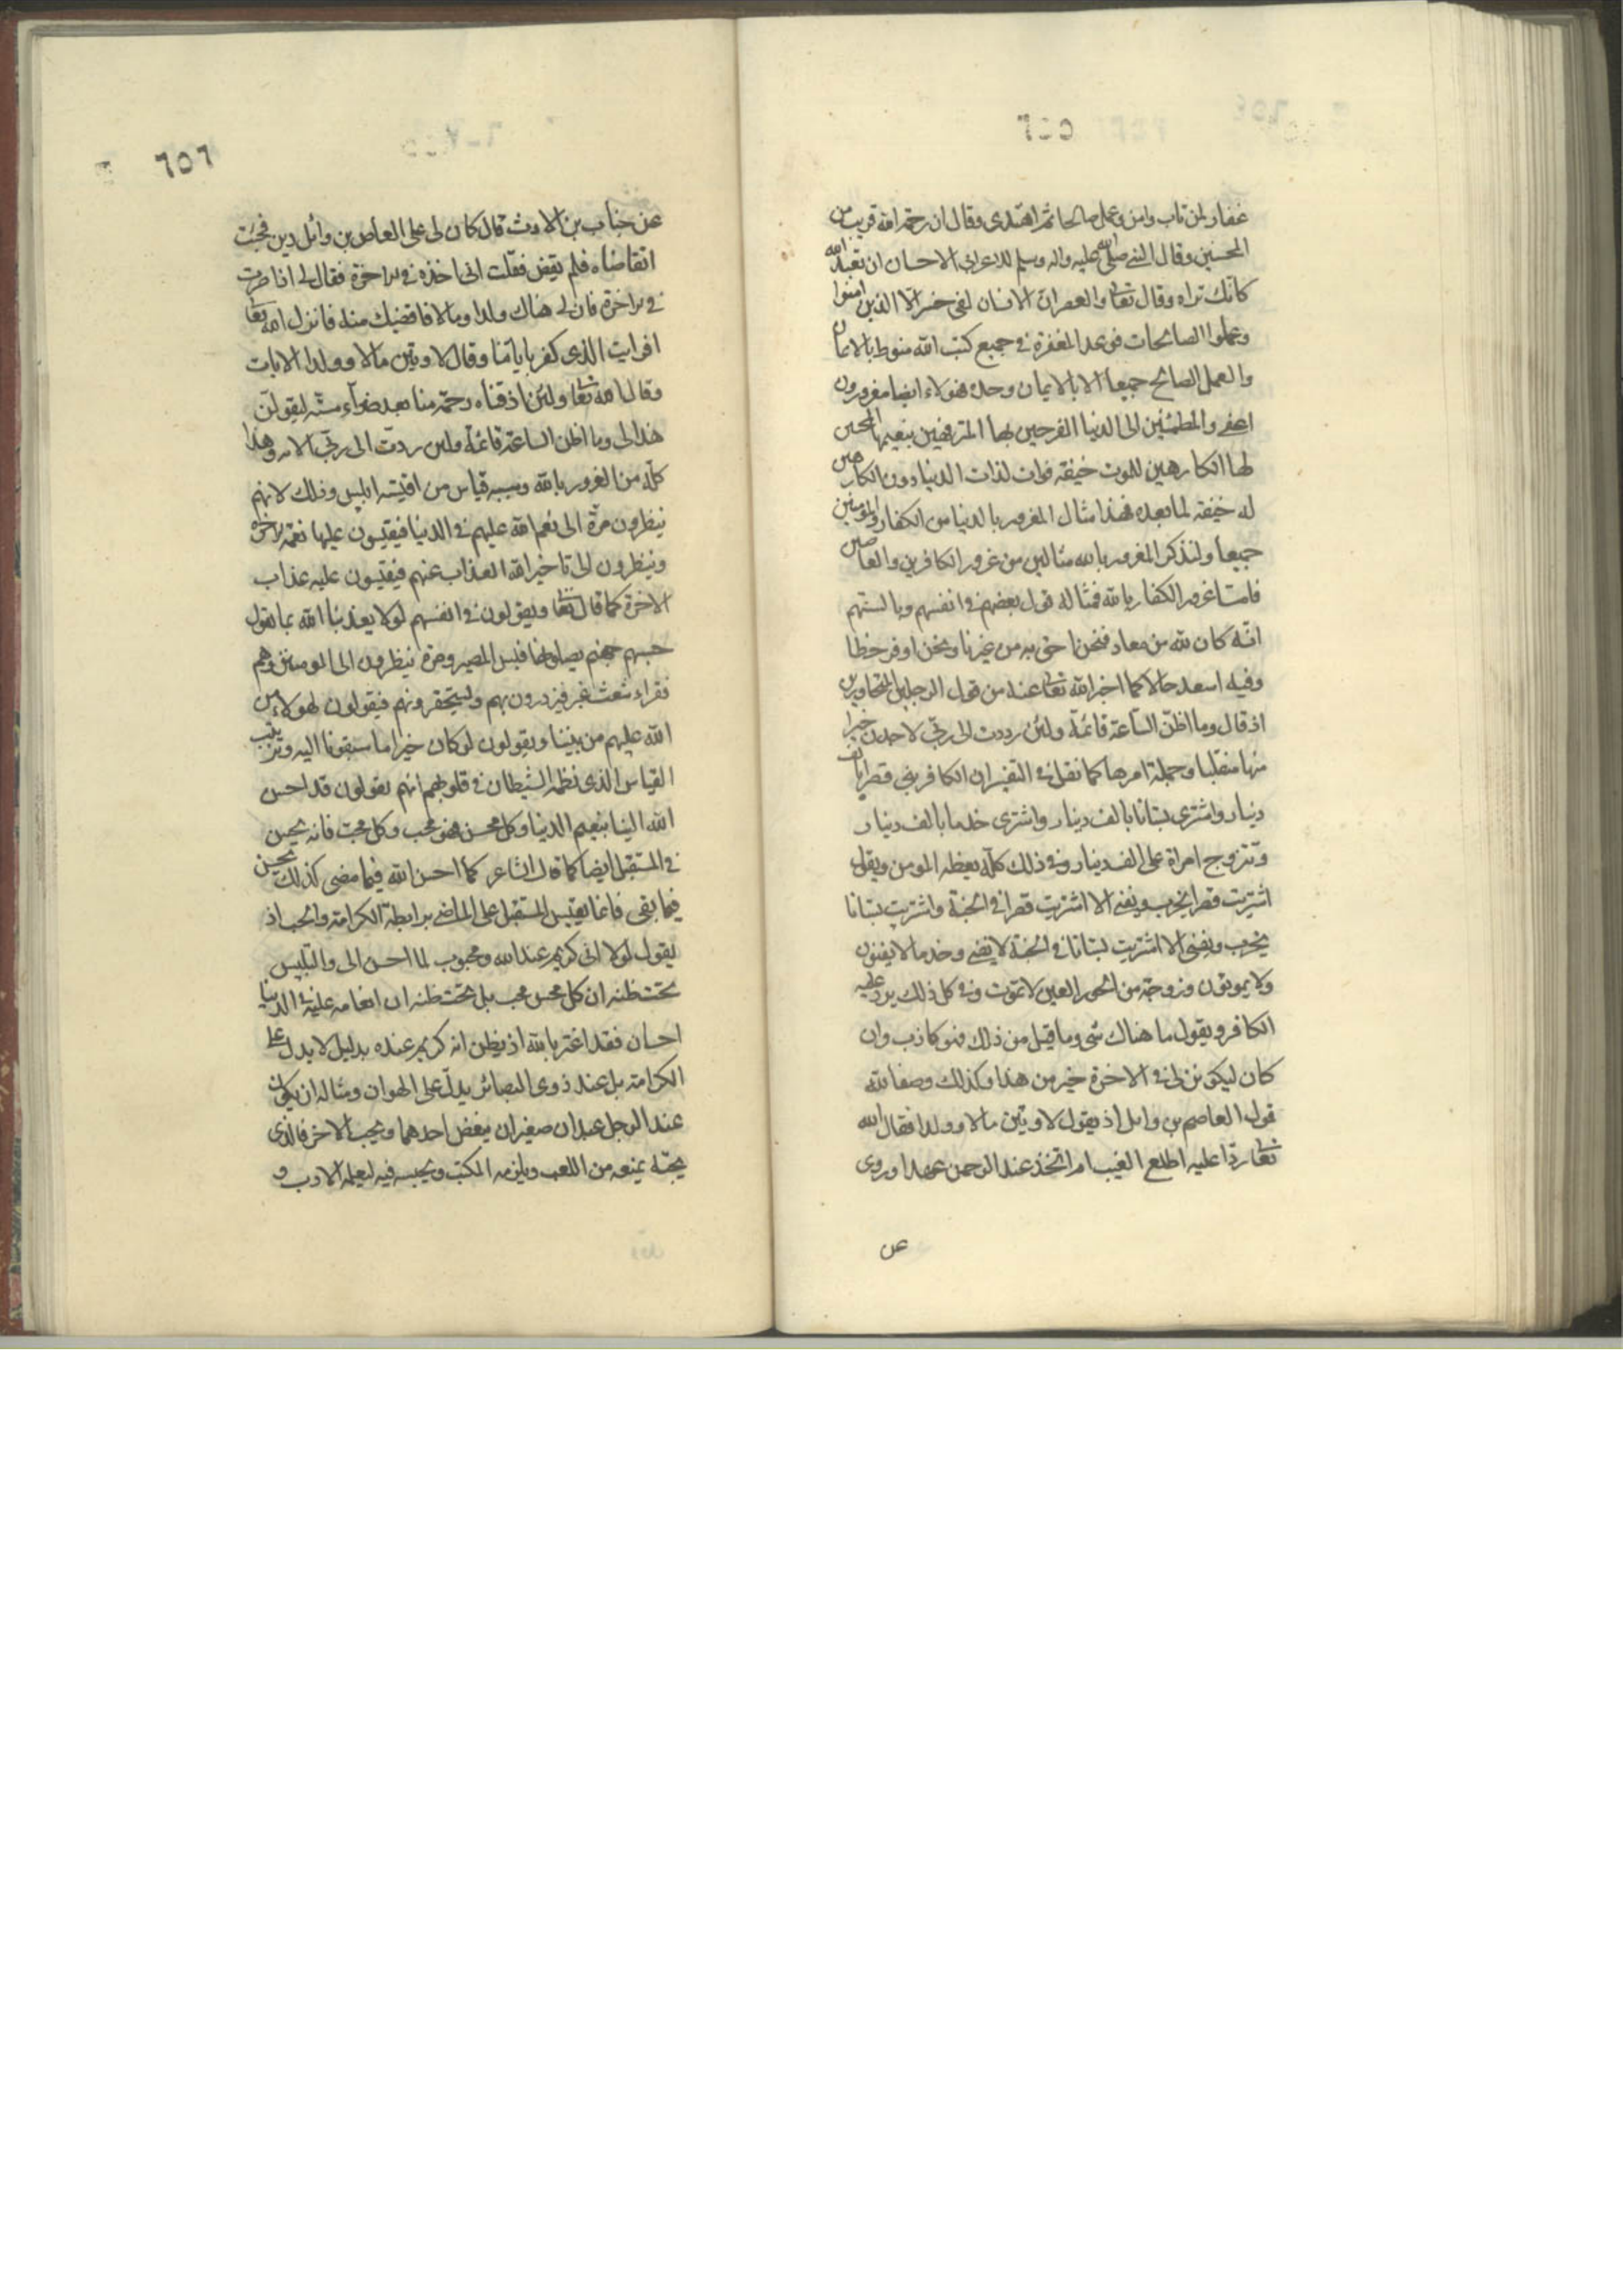 غفار لمن تاب وامن وعمل صالحا ثم اهتدى وقال ان رحمة الله قريب من
المحسنين وقال النبي صلى الله عليه واله وسلم للاعرابي الاحسان ان تعبد الله
كانك تراه وقال تعالى والعصر ان الانسان لفى خسر الا الذين امنوا
وعملوا الصالحات فوعد المغفرة في جميع كتب الله منوط بالايمان
والعمل الصالح جميعا لا بالايمان وحده فهولاء ايضا مغرورون
اعنى والمطمئنين الى الدنيا الفرحين بها المترفهين بنعيمها المحبين
لها الكارهين للموت خيفة فوات لذات الدنيا دون الكارهين
له خيفة لما بعده فهذا مثال المغرور بالدنيا من الكفار والمومنين
جميعا ولنذكر المغرور بالله مثالين من غرور الكافرين والعاصين
فامّا غرور الكفار بالله فمثاله قول بعضهم في انفسهم وبالسنتهم
انّه كان لله من معاد فنحن احق به من غيرنا ونحن اوفر حظا
وفيه اسعد حالا كما اخبر الله تعالى عنه من قول الرجلين المتحاورين
اذ قال وما اظنّ السّاعة قائمة ولئن رددت الى ربّي لاجدن خيرا
منها منقلبا وجملة امرها كما نقل في التفسير ان الكافر بنى قصرا بالف
دينار واشترى بستانا بالف دينار واشترى خدما بالف دينار
وتزوج امراة على الف دينار وفي ذلك كلّه يعظه المومن ويقول
اشتريت قصرا يخرب ويفنى الا اشتريت قصرا في الجنة واشتريت بستانا
يخرب ويفنى الا اشتريت بستانا في الجنة لا يفنى وخدما لا يفنون
ولا يموتون وزوجة من الحور العين لا تموت وفي كل ذلك يرد عليه
الكافر ويقول ما هناك شى وما قيل من ذلك فهو كاذب وان
كان ليكونن لى في الاخرة خير من هذا وكذلك وصف الله
قول العاص بن وايل اذ يقول لاوتين مالا وولدا فقال الله
تعالى ردّا عليه اطلع الغيب ام اتخذ عند الرحمن عهدا وروى
عن
٦٥٦
عن خباب بن الارث قال كان لى على العاص بن وائل دين فجئت
اتقاضاه فلم يقض فقلت انى اخذه في الاخرة فقال لى اذا صرت
في الاخرة فان لى هناك ولدا ومالا فاقضيك منه فانزل الله تعالى
افرايت الذى كفر باياتنا وقال لاوتين مالا وولدا الايات
وقال الله تعالى ولئن اذقناه رحمة منا بعد ضرآء مسّته ليقولنّ
هذا لى وما اظن الساعة قائمة ولئن ردّت الى ربّي الاية وهذا
كلّه من الغرور بالله وسببه قياس من اقيسة ابليس وذلك لانهم
ينظرون مرّة الى نعم الله عليهم في الدنيا فيقيسون عليها نعمة الاخرة
وينظرون الى تاخير الله العذاب عنهم فيقيسون عليه عذاب
الاخرة كما قال تعالى ويقولون في انفسهم لولا يعذبنا الله بما نقول
حسبهم جهنم يصلونها فبئس المصير ومرة ينظرون الى المومنين وهم
فقراء شعث غبر فيزدرون بهم ويستحقرونهم فيقولون اهولاء من
الله عليهم من بيننا ويقولون لو كان خيرا ما سبقونا اليه وترتيب
القياس الذى نظمه الشيطان في قلوبهم انهم يقولون قد احسن
الله الينا بنعيم الدنيا وكل محسن فهو محب وكل محبّ فانه يحسن
في المستقبل ايضا كما قال الشاعر كما احسن الله فيما مضى كذلك يحسن
فيما بقى فانما يقيس المستقبل على الماضي برابطة الكرامة والحب اذ
يقول لولا انى كريم عند الله ومحبوب لما احسن الى والتلبيس
تحت ظنه ان كل محسن محب بل تحت ظنه ان انعامه عليه في الدنيا
احسان فقد اغتر بالله اذ يظن انه كريم عنده بدليل لا يدل على
الكرامة بل عند ذوى البصائر يدلّ على الهوان ومثاله ان يكون
عند الرجل عبدان صغيران يبغض احدهما ويحب الاخر فالذى
يحبّه يمنعه من اللعب ويلزمه المكتب ويحبسه فيه ليعلمه الادب و